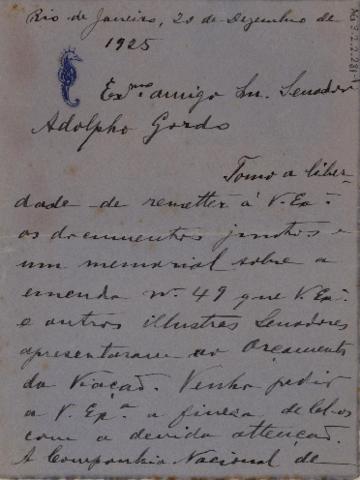 Rio de Janeiro, 23 de Dezembro de
1925
Exmo amigo Snr. Senador
Adolpho Gordo
Tomo a liber-
dade de remetter á V. Exª
os documentos juntos e
um memorial sobre a
emenda nº 49 que V. Exª
e outros illustres Senadores
apresentaram ao Orçamento
da Viação. Venho pedir
a V. Exª a finesa de lel-os
com a devida attenção.
A Companhia Nacional de